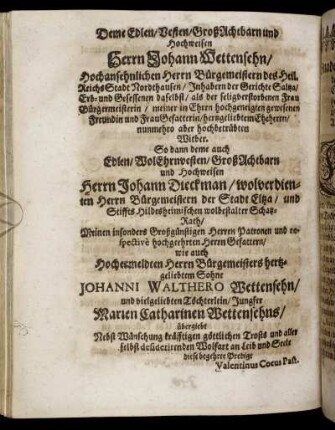 Deme Edlen/ Vesten/ GroßAchtbarn und
Hochweisen
Herrn Johann Wettensehn/
Hochansehnlichen Herrn Bürgemeistern des Heil.
Reichs Stadt Nordthausen/ Inhabern der Gerichte Saltza/
Erb- und Gesessenen daselbst/ als der seligverstorbenen Frau
Bürgemeisterin/ meiner in Ehren hochgeneigten gewesenen
Freundin und Frau Gefatterin/ hertzgeliebtem Eheherrn/
nunmehro aber hochbetrübten
Witber.
So dann deme auch
Edlen/ WolEhrnvesten/ GroßAchtbarn
und Hochweisen
Herrn Johann Dieckman/ wolverdien-
ten Herrn Bürgemeistern der Stadt Eltza/ und
Stiffts Hildesheimischen wolbestalter Schatz-
Rath/
Meinen insonders Großgünstigen Herren Patronen und re-
spectivè hochgeehrten Herrn Gefattern/
wie auch
Hochermeldten Herrn Bürgemeisters hertz-
geliebtem Sohne
JOHANNI WALTHERO Wettensehn/
und vielgeliebten Töchterlein/ Jungfer
Marien Catharinen Wettensehns/
übergiebt
Nebst Wünschung kräfftigen göttlichen Trosts und aller
selbst desiderirenden Wolfart an Leib und Seele
diese begehrte Predigt
Valentinus Cocus Past.